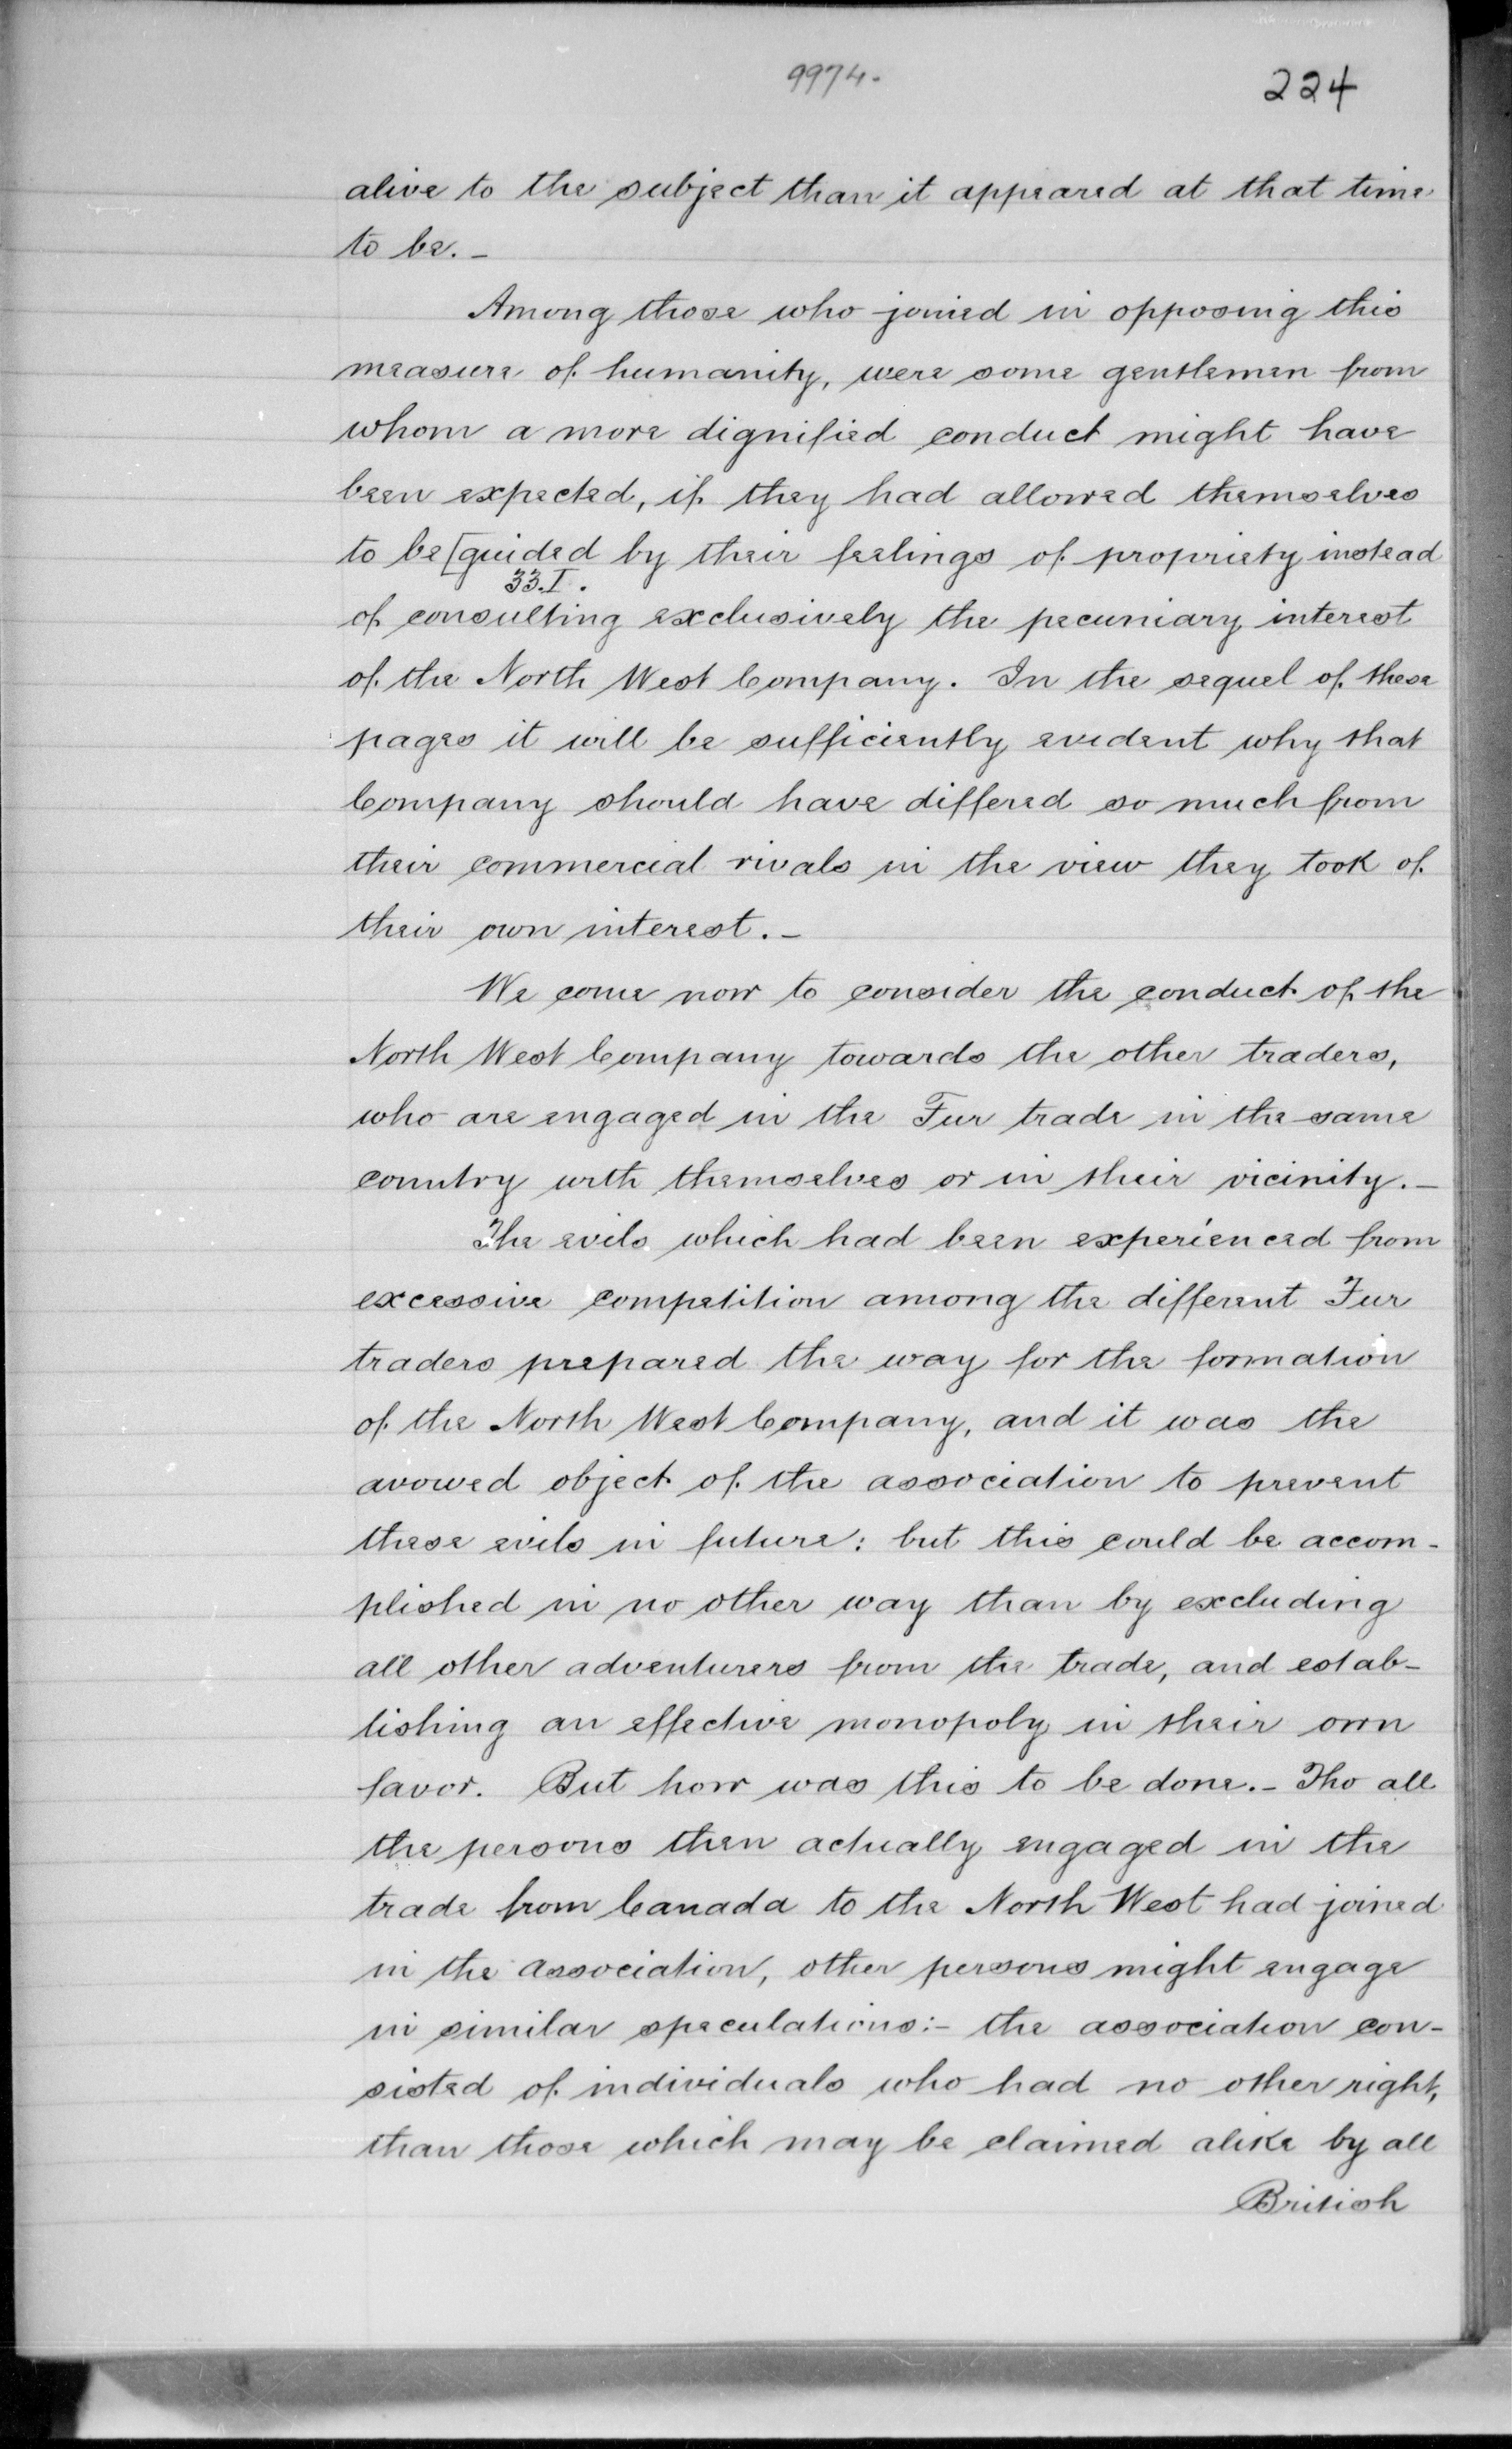 9974.
224
alive to the subject than it appeared at that time
to be. –
Among those who joined in opposing this
measure of humanity, were some gentlemen from
whom a more dignified conduct might have
been expected, if they had allowed themselves
to be [guided by their feelings of propriety instead
33.I.
of consulting exclusively the pecuniary interest
of the North West Company. In the sequel of these
pages it will be sufficiently evident why that
Company should have differed so much from
their commercial rivals in the view they took of
their own interest. –
We come now to consider the conduct of the
North West Company towards the other traders,
who are engaged in the Fur trade in the same
country with themselves or in their vicinity. –
The evils which had been experienced from
excessive competition among the different Fur
traders prepared the way for the formation
of the North West Company, and it was the
avowed object of the association to prevent
these evils in future: but this could be accom-
plished in no other way than by excluding
all other adventurers from the trade, and estab-
lishing an effective monopoly in their own
favor. But how was this to be done. – Tho all
the persons then actually engaged in the
trade from Canada to the North West had joined
in the association, other persons might engage
in similar speculations: – the association con-
sisted of individuals who had no other right,
than those which may be claimed alike by all
British